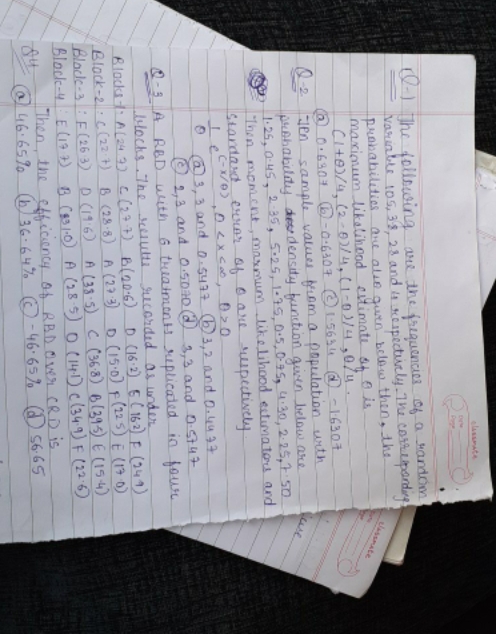 Q-1 The following are the frequencies of a random
variable 105, 38, 28 and respectively. The corresponding
probabilities are also given below then, the
maximum likelihood estimate of θ is
(1+θ)/4, (2-θ)/4, (1-θ)/4, θ/4.
(a) 0.6307 (b) -0.6307 (c) 1.5634 (d) -1.6307
Q-2 Ten sample values from a population with
probability density function given below are
1.25, 0.45, 2.35, 5.25, 1.75, 0.5, 0.95, 4.30, 2.25, 7.50
Then moment, maximum likelihood estimators and
standard error of θ are respectively
1/θ e^(-x/θ), 0 < x < ∞, θ > 0
(a) 3, 3 and 0.5477 (b) 3, 2 and 0.4477
(c) 2, 3 and 0.5070 (d) 3, 3 and 0.5747
Q-3 A RBD with 6 treatments replicated in four
blocks. The results recorded as under
Block-1: A(24.7) C(27.7) B(20.6) D(16.2) E(16.2) F(24.9)
Block-2: C(22.7) B(28.8) A(27.3) D(15.0) F(22.5) E(17.0)
Block-3: F(26.3) D(19.6) A(38.5) C(36.8) B(39.5) E(15.4)
Block-4: E(17.7) B(31.0) A(28.5) D(14.1) C(34.9) F(22.6)
Then, the efficiency of RBD over CRD is
(a) 46.65% (b) 36.64% (c) -46.65% (d) 56.65
classmate
classmate